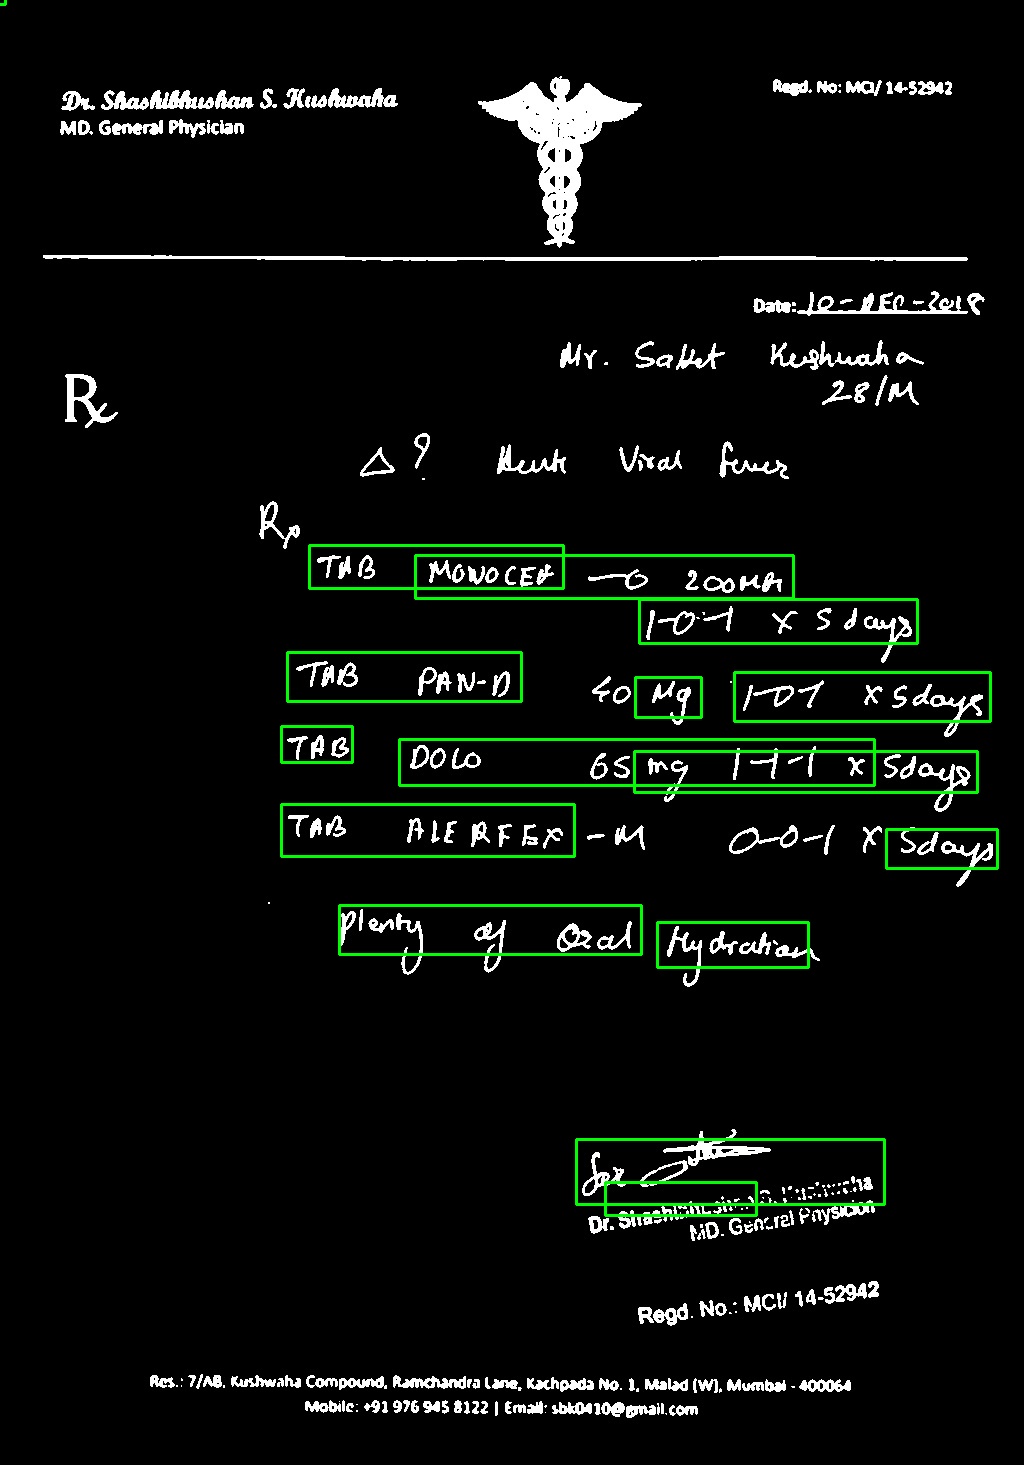 Dr. Shashibhushan S. Kushwaha
MD. General Physician
Regd. No: MCI/ 14-52942
Date: 10-DEC-2018
Mr. Saket Kushwaha
28/M
Rx
Δ ? Acute Viral Fever
Rx
TAB MONOCEF -O 200MG
1-0-1 x 5 days
TAB PAN-D 40 Mg 1-0-1 x 5days
TAB DOLO 65 mg 1-1-1 x 5days
TAB ALERFEX -M 0-0-1 x 5days
Plenty of Oral Hydration
for
Dr. Shashibhushan S. Kushwaha
MD. General Physician
Regd. No.: MCI/ 14-52942
Res.: 7/AB, Kushwaha Compound, Ramchandra Lane, Kachpada No. 1, Malad (W), Mumbai - 400064
Mobile: +91 976 945 8122 | Email: sbk0410@gmail.com